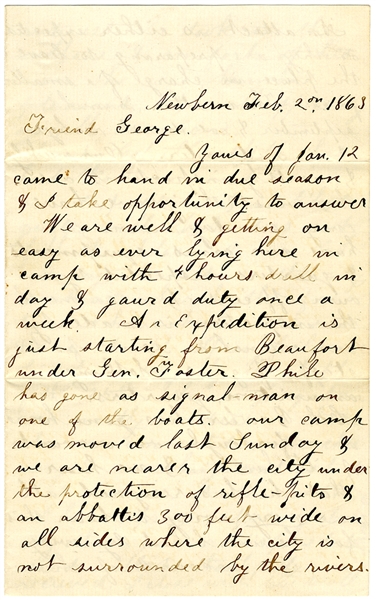 Newbern Feb. 2on, 1863
Friend George.
Yours of Jan. 12
came to hand in due season
& I take opportunity to answer
We are well & getting on
easy as ever lying here in
camp with 4 hours drill in
day & gaurd duty once a
week. An Expedition is
just starting from Beaufort
under Gen. Foster. Phile
has gone as signal-man on
one of the boats. our camp
was moved last Sunday &
we are nearer the city under
the protection of rifle-pits &
an abbattis 300 feet wide on
all sides where the city is
not surrounded by the rivers.